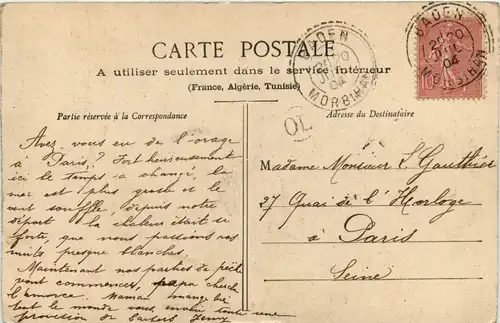 CARTE POSTALE
A utiliser seulement dans le service intérieur
(France, Algérie, Tunisie)
BADEN
20
JUIL
04
MORBIHAN
BADEN
20
JUIL
04
MORBIHAN
10
OL
Partie réservée à la Correspondance
Adresse du Destinataire
Avez vous eu de l'orage
à Paris? Fort heureusement
ici le temps a changé, la
mer est plus grosse et le
vent souffle, depuis notre
départ la chaleur était si
forte, que nous passions nos
nuits presque blanches.
Maintenant nos parties de pêche
vont commencer, papa cherche
l'amorce. Maman mange
tout le monde vous envoie toute une
provision de baisers
Madame Monsieur L Gauthier
27 Quai de l'Horloge
à Paris
Seine